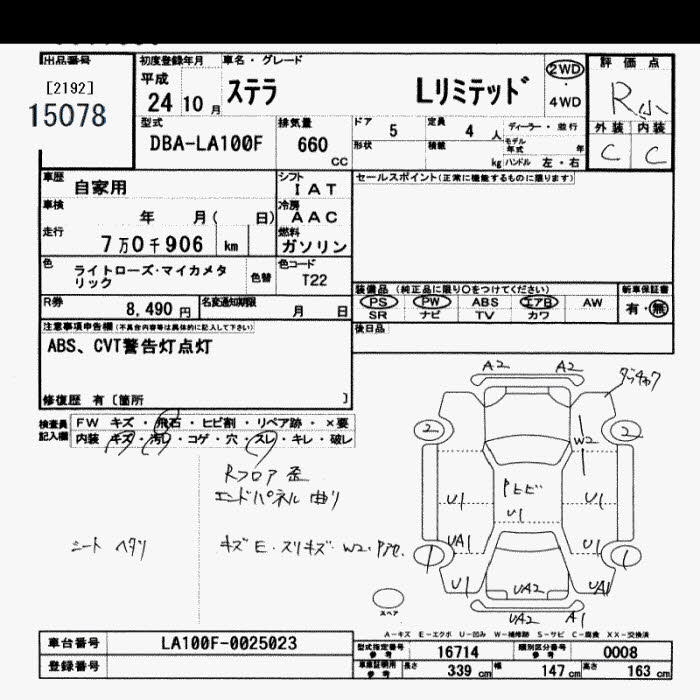 出品番号
[2192]
15078
初度登録年月
平成
24 10 月
車名・グレード
ステラ Lリミテッド
2WD
・
4WD
評価点
R小
外装 内装
C C
型式
DBA-LA100F
排気量
660
CC
ドア 5
定員 4 人
ディーラー・並行
形状
積載 kg
モデル年式 年
ハンドル 左・右
車歴
自家用
シフト
I A T
車検
年 月( 日)
冷房
A A C
走行
7 万 0 千 906 km
燃料
ガソリン
色
ライトローズ・マイカメタリック
色替
色コード
T22
R券
8,490 円
名変通知期限
月 日
セールスポイント(正常に機能するものに限ります)
装備品 (純正品に限り○をつけてください)
PS PW ABS エアB AW
SR ナビ TV カワ
新車保証書
有・無
後日品
注意事項申告欄(不具合内容等は具体的に記入して下さい)
ABS、CVT警告灯点灯
修復歴 有 〔箇所 〕
検査員記入欄
FW キズ・飛石・ヒビ割・リペア跡・×要
内装 キズ・汚レ・コゲ・穴・スレ・キレ・破レ
Rフロア 歪
エンドパネル 曲り
シート ヘタリ
キズE・スリキズ・W2・
A2 A2
2 2
W2
Pヒビ
U1
U1 U1
UA1 U1
1 1
U1 UA2 UA1
UA2 A1
スペア
A－キズ E－エクボ U－凹み W－補修跡 S－サビ C－腐食 XX－交換済
車台番号 LA100F-0025023
登録番号
型式指定番号 参考 16714
類別区分番号 参考 0008
車庫証明用 参考 長さ 339 cm 幅 147 cm 高さ 163 cm